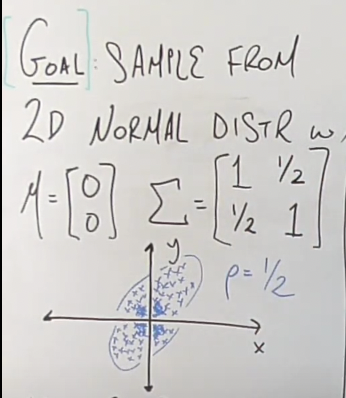 [GOAL]: SAMPLE FROM
2D NORMAL DISTR w/
M = [0 0] Σ = [1 1/2 1/2 1]
y
ρ = 1/2
x